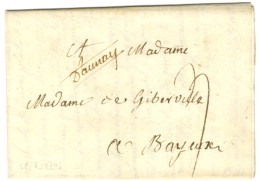 Daunay Madame
Madame de Giberville
a Bayeux